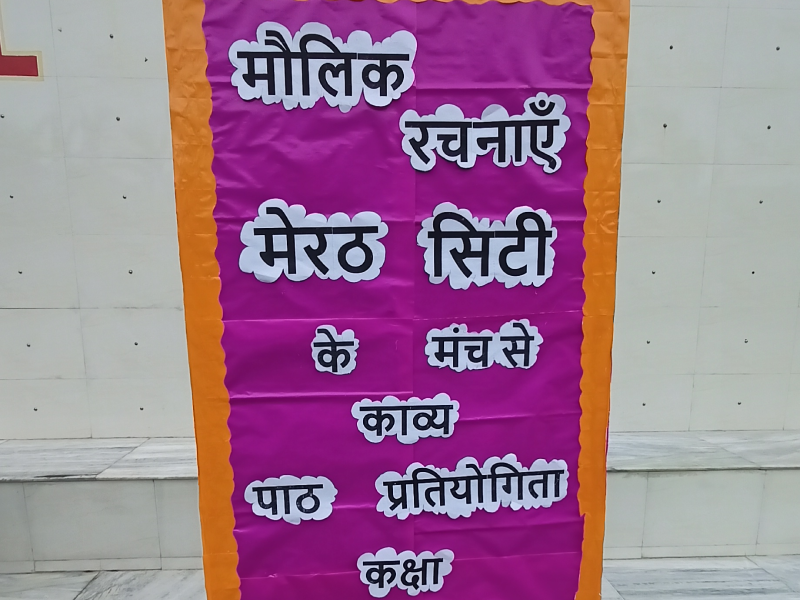 मौलिक
रचनाएँ
मेरठ सिटी
के मंच से
काव्य
पाठ प्रतियोगिता
कक्षा